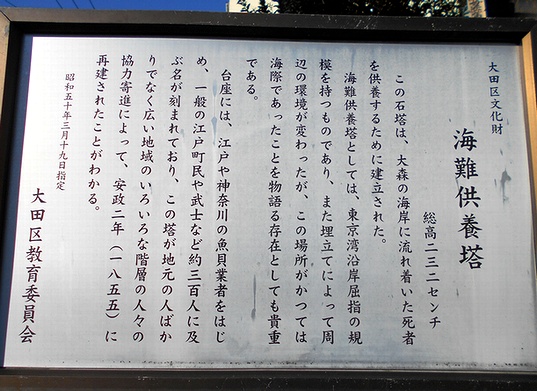 大田区文化財
海難供養塔
総高二三二センチ
この石塔は、大森の海岸に流れ着いた死者
を供養するために建立された。
海難供養塔としては、東京湾沿岸屈指の規
模を持つものであり、また埋立てによって周
辺の環境が変わったが、この場所がかつては
海際であったことを物語る存在としても貴重
である。
台座には、江戸や神奈川の魚貝業者をはじ
め、一般の江戸町民や武士など約三百人に及
ぶ名が刻まれており、この塔が地元の人ばか
りでなく広い地域のいろいろな階層の人々の
協力寄進によって、安政二年（一八五五）に
再建されたことがわかる。
昭和五十年三月十九日指定
大田区教育委員会